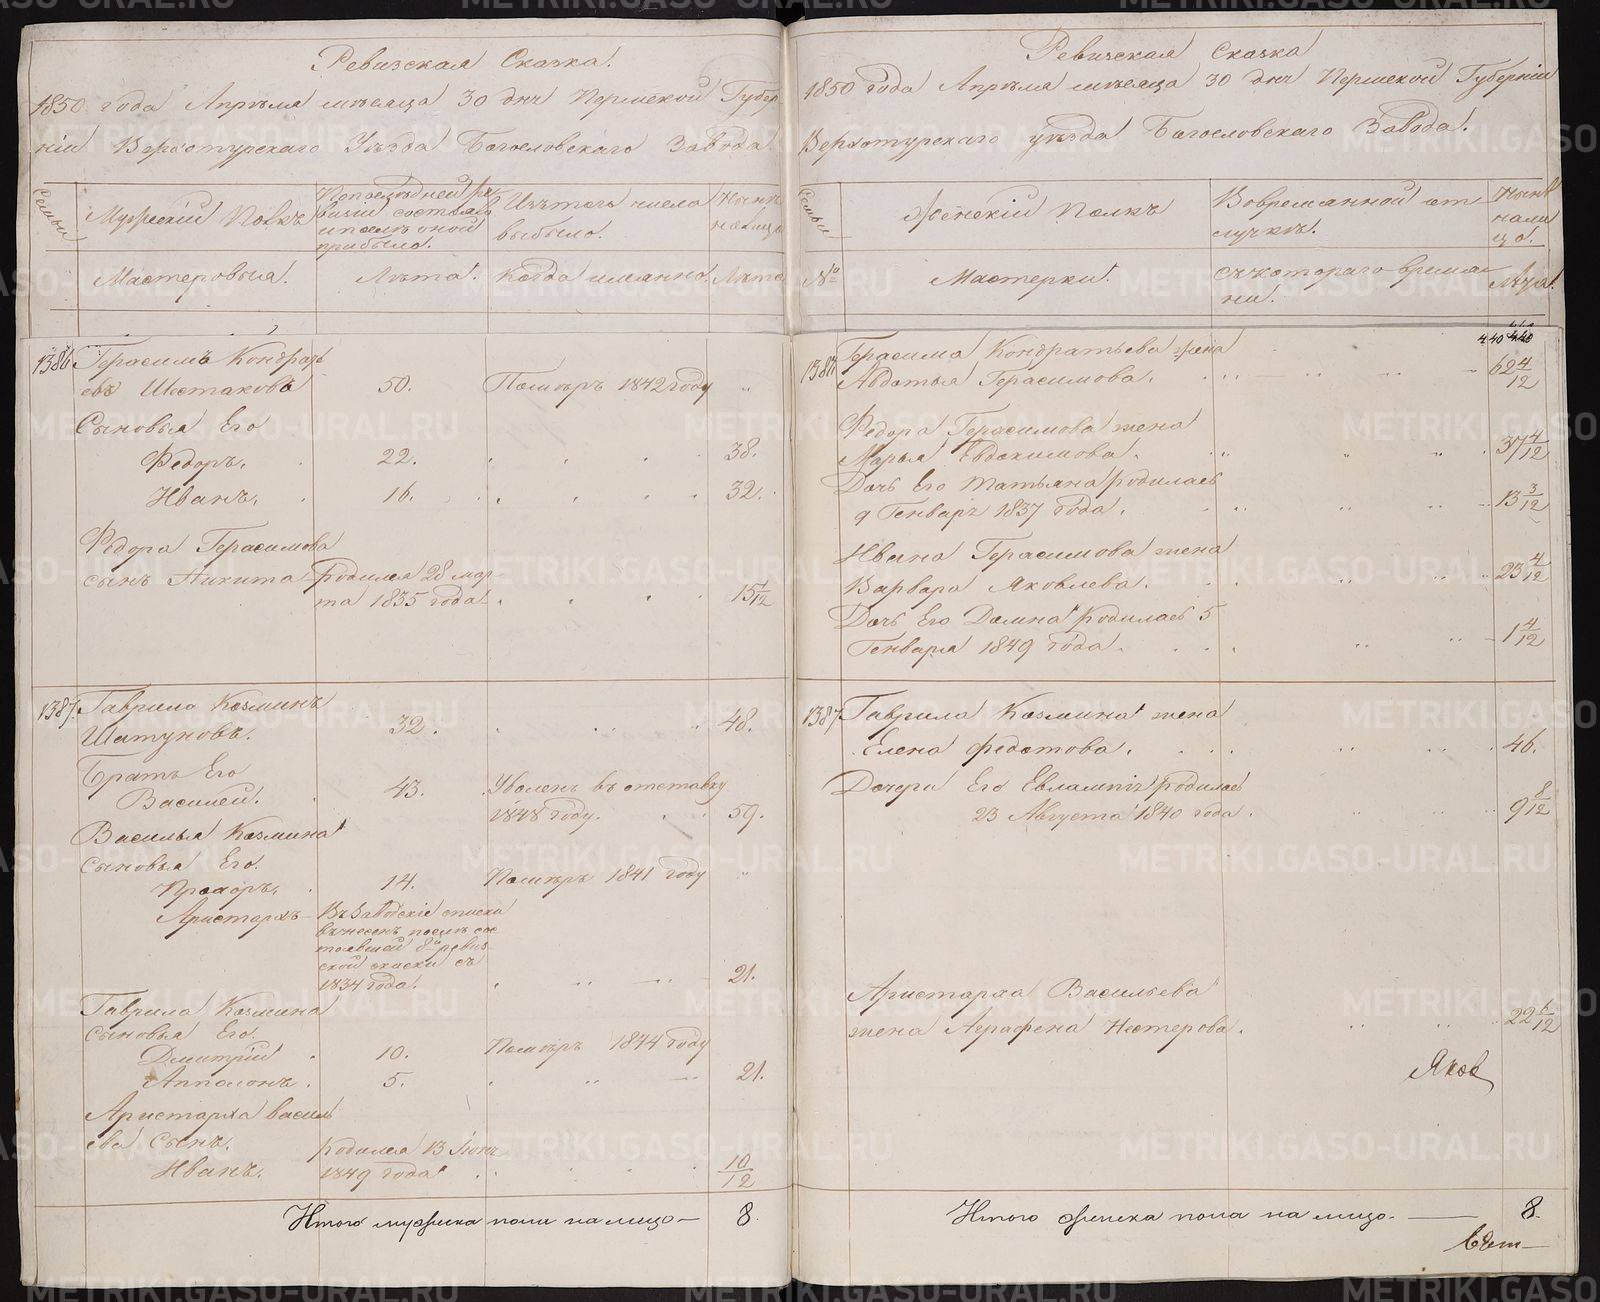 Ревизская Сказка.
1850 года Апрѣля мѣсяца 30 дня Пермской Губер
ніи Верхотурскаго Уѣзда Богословскаго Завода.
Семьи
Мужескій Полъ
По последней ре
визіи состояло
и после оной
прибыло.
Изъ того числа
выбыло.
Нынѣ
на лицо
Мастеровыя.
Лѣта.
Когда имянно.
Лѣта
1386
Герасимъ Кондрать
евъ Шестаковъ
50.
Помѣръ 1842 году
Сыновья Его
Федоръ.
22.
38.
Иванъ.
16.
32.
Федора Герасимова
сынъ Никита
родился 28 мар
та 1835 года
15 1/12
1387.
Гаврило Козминъ
Шатуновъ.
32.
48.
Братъ Его
Василей.
43.
Уволенъ въ отставку
1848 году.
59.
Василья Козмина
Сыновья Его.
Прохоръ.
14.
Помѣръ 1841 году
Аристархъ
Въ Заводскіе списки
внесенъ после сос
тоявшей 8й ревиз
ской скаски съ
1834 года.
21.
Гаврила Козмина
Сыновья Его.
Дмитрій
10.
Помѣръ 1844 году
Апполонъ.
5.
21.
Аристарха Василь
ева Сынъ.
Иванъ.
родился 13 Іюня
1849 года
10/12
Итого мужеска пола на лицо — 8.
Ревизская Сказка
1850 года Апрѣля мѣсяца 30 дня Пермской Губерніи
Верхотурскаго уѣзда Богословскаго Завода.
Семьи
Женскій Полъ
Во временной от
лучкѣ.
Нынѣ
на ли
цо.
№
Мастерки.
Съ котораго време
ни.
Лѣта.
440
1386
Герасима Кондратьева жена
Авдотья Герасимова.
62 4/12
Федора Герасимова жена
Марья Евдокимова.
37 4/12
Дочь Его Татьяна родилась
9 Генваря 1837 года.
13 3/12
Ивана Герасимова жена
Варвара Яковлева.
23 4/12
Дочь Его Домна родилась 5
Генваря 1849 года.
1 4/12
1387
Гаврила Козмина жена
Елена Федотова.
46.
Дочери Его Евлампія родилась
23 Августа 1840 года.
9 8/12
Аристарха Васильева
жена Аграфена Нестерова.
22 6/12
Яков
Итого женска пола на лицо. — 8.
METRIKI.GASO-URAL.RU